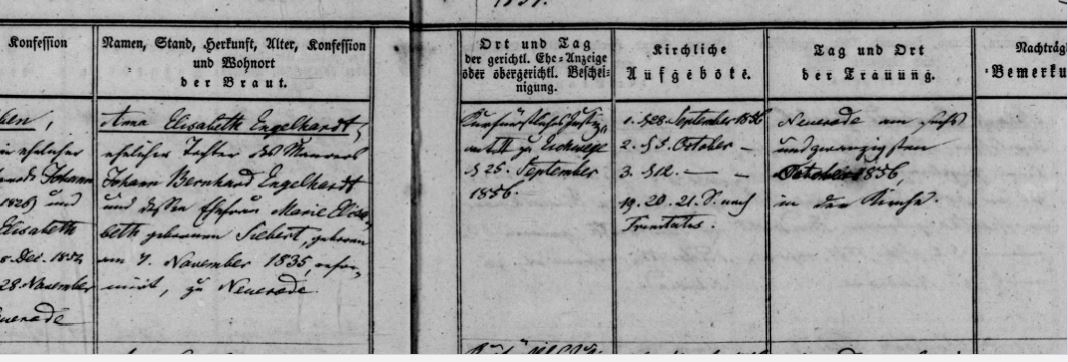 Konfession
Namen, Stand, Herkunft, Alter, Konfession
und Wohnort
der Braut.
Ort und Tag
der gerichtl. Ehe-Anzeige
oder obergerichtl. Beschei-
nigung.
Kirchliche
Aufgebote.
Tag und Ort
der Trauung.
Nachträgl
Bemerku
ben,
ehelicher
Johann
1826) und
Elisabeth
Dec. 1852
28 November
uerode
Anna Elisabeth Engelhardt,
eheliche Tochter des Maurers
Johann Bernhard Engelhardt
und dessen Ehefrau Marie Elisa-
beth geborenen Siebert, geboren
am 7. November 1835, refor-
mirt, zu Neuerode
Kurfürstliches Justiz-
amt II zu Eschwege
d 25. September
1856.
1. d 28. September 1856
2. d 5. October –
3. d 12. – –
19. 20. 21. S. nach
Trinitatis.
Neuerode am sechs
und zwanzigsten
October 1856,
in der Kirche.